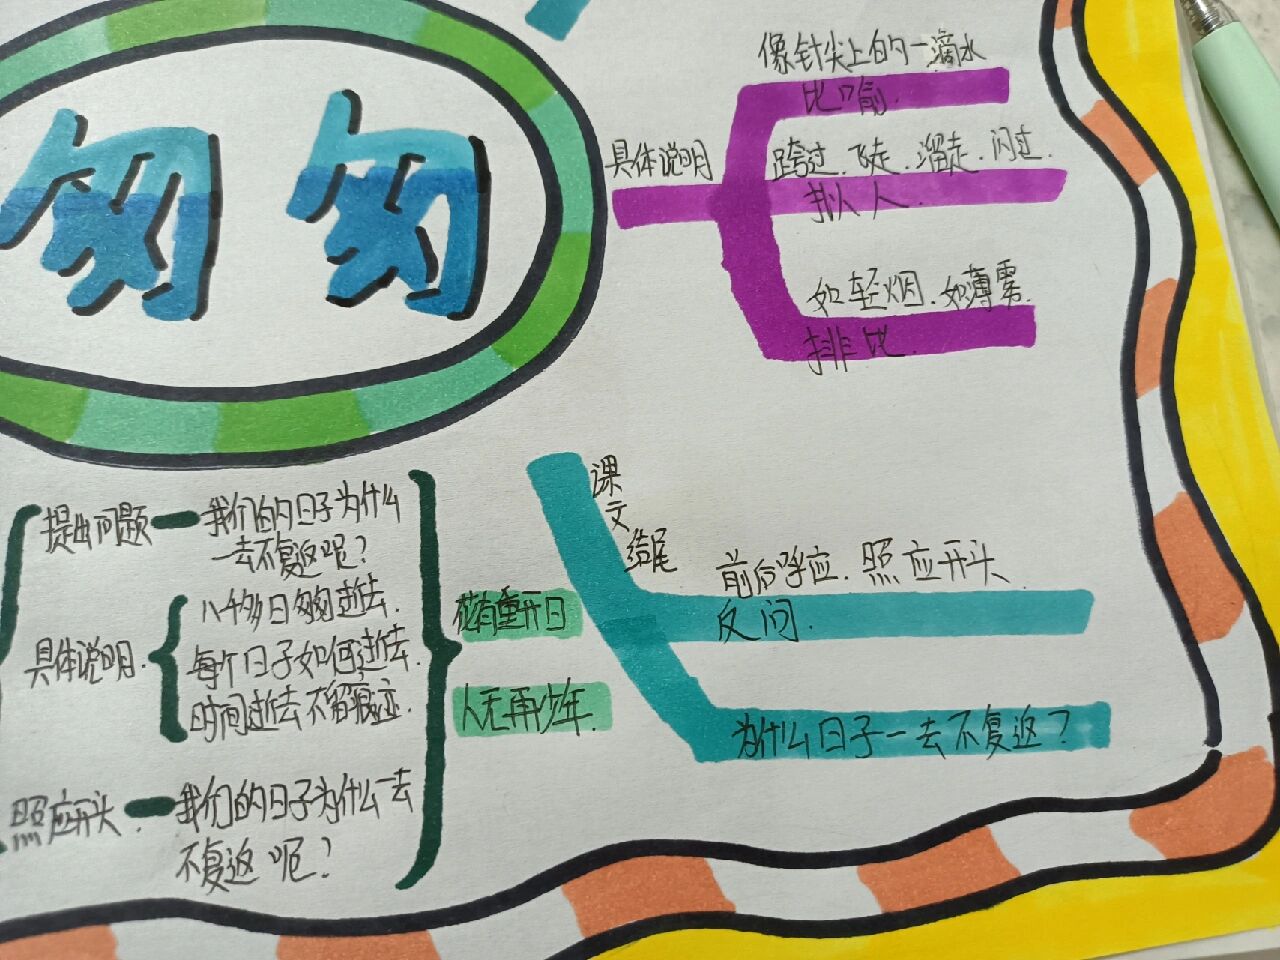 匆匆
具体说明
像针尖上的一滴水
比喻.
跨过.飞走.溜走.闪过.
拟人
如轻烟.如薄雾.
排比.
提出问题
我们的日子为什么
一去不复返呢?
具体说明.
八千多日匆匆逝去.
每个日子如何逝去.
时间逝去不留痕迹.
照应开头.
我们的日子为什么一去
不复返呢?
花有重开日
人无再少年.
课文结尾
前后呼应.照应开头
反问.
为什么日子一去不复返?